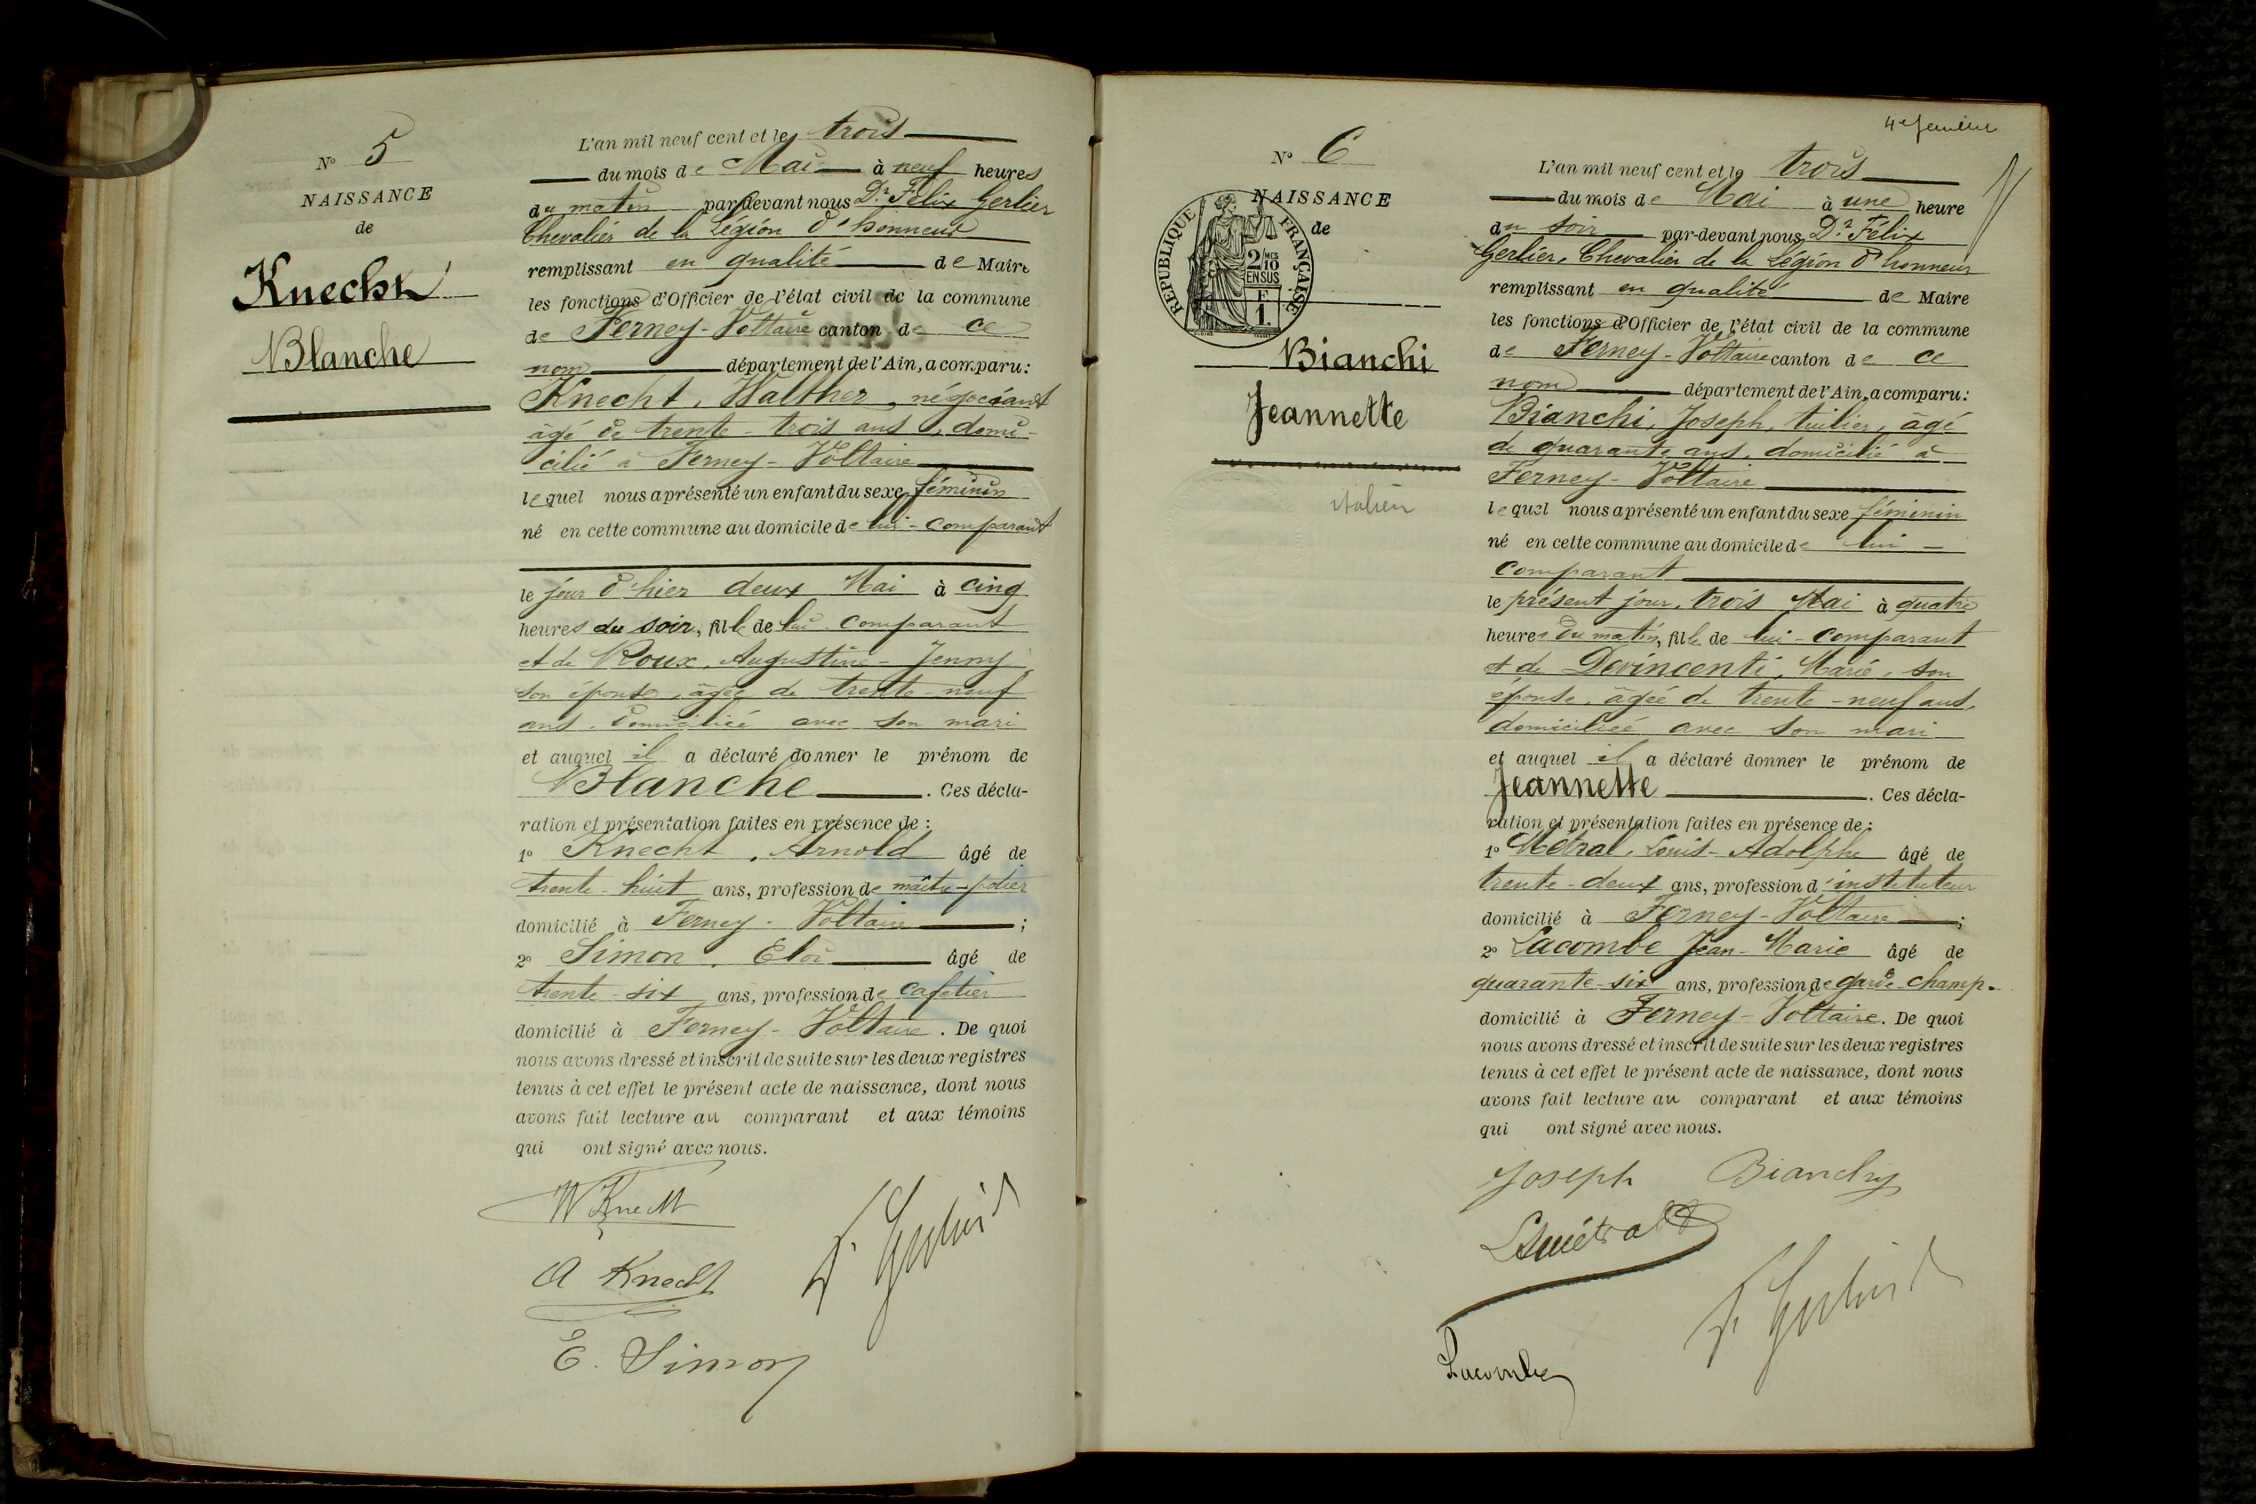 N° 5
NAISSANCE
de
Knecht
Blanche
L'an mil neuf cent et le trois
du mois de Mai à neuf heures
du matin par-devant nous Dr. Félix Gerlier
Chevalier de la Légion d'honneur
remplissant en qualité de Maire
les fonctions d'Officier de l'état civil de la commune
de Ferney-Voltaire canton de ce
nom département de l'Ain, a comparu:
Knecht, Walther, négociant
âgé de trente-trois ans, domi-
cilié à Ferney-Voltaire
lequel nous a présenté un enfant du sexe féminin
né en cette commune au domicile de lui-comparant
le jour d'hier deux Mai à cinq
heures du soir, fille de lui-comparant
et de Roux, Augustine-Jenny,
son épouse, âgée de trente-neuf
ans, domiciliée avec son mari
et auquel il a déclaré donner le prénom de
Blanche. Ces décla-
ration et présentation faites en présence de :
1° Knecht, Arnold âgé de
trente-huit ans, profession de maître-potier
domicilié à Ferney-Voltaire ;
2° Simon, Eloi âgé de
trente-six ans, profession de cafetier
domicilié à Ferney-Voltaire. De quoi
nous avons dressé et inscrit de suite sur les deux registres
tenus à cet effet le présent acte de naissance, dont nous
avons fait lecture au comparant et aux témoins
qui ont signé avec nous.
W Knecht
A Knecht
F. Gerlier
E. Simon
4e
N° 6
NAISSANCE
de
REPUBLIQUE FRANÇAISE
2/10 MES
EN SUS
F
1.
Bianchi
Jeannette
italien
L'an mil neuf cent et le trois
du mois de Mai à une heure
du soir par-devant nous Dr. Félix
Gerlier, Chevalier de la Légion d'honneur
remplissant en qualité de Maire
les fonctions d'Officier de l'état civil de la commune
de Ferney-Voltaire canton de ce
nom département de l'Ain, a comparu:
Bianchi, Joseph, tuilier, âgé
de quarante ans, domicilié à
Ferney-Voltaire
lequel nous a présenté un enfant du sexe féminin
né en cette commune au domicile de lui-
comparant
le présent jour, trois Mai à quatre
heures du matin, fille de lui-comparant
et de Devincenti, Marie, son
épouse, âgée de trente-neuf ans,
domiciliée avec son mari
et auquel il a déclaré donner le prénom de
Jeannette. Ces décla-
ration et présentation faites en présence de :
1° Métral, Louis-Adolphe âgé de
trente-deux ans, profession d'instituteur
domicilié à Ferney-Voltaire ;
2° Lacombe Jean-Marie âgé de
quarante-six ans, profession de garde champ.
domicilié à Ferney-Voltaire. De quoi
nous avons dressé et inscrit de suite sur les deux registres
tenus à cet effet le présent acte de naissance, dont nous
avons fait lecture au comparant et aux témoins
qui ont signé avec nous.
Joseph Bianchy
LAmétral
F. Gerlier
Lacombe